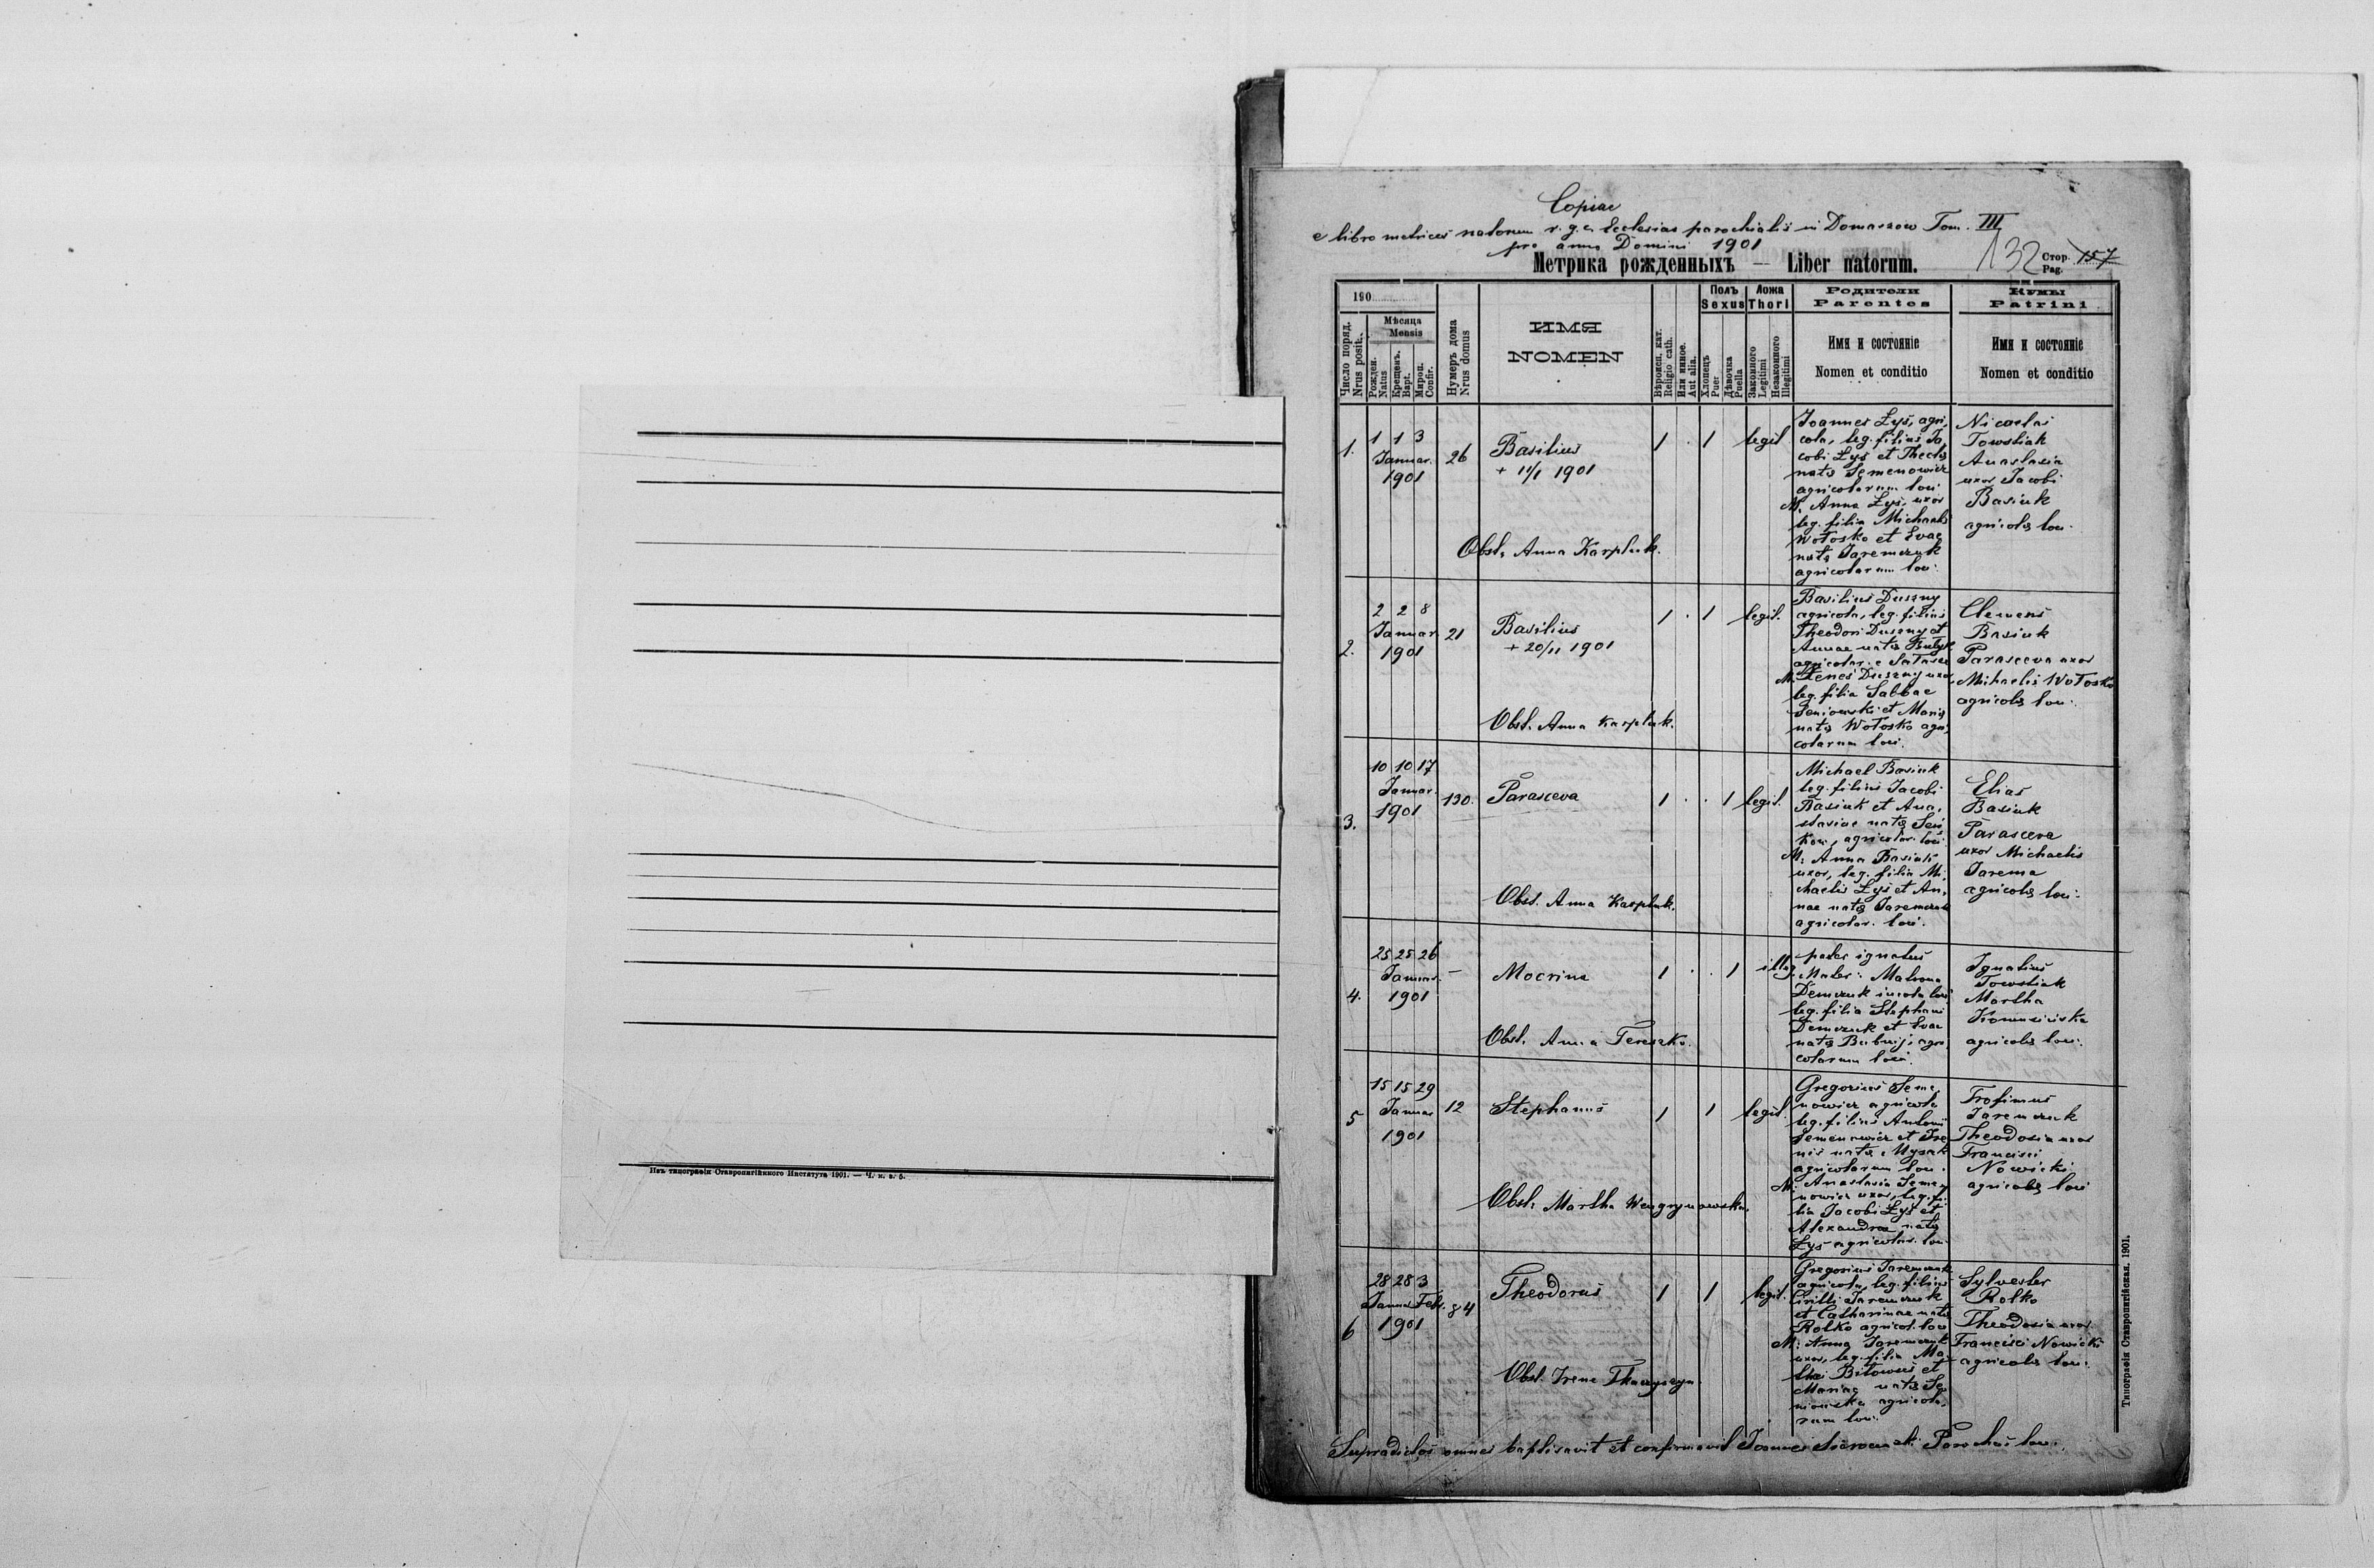 Copiae
e libro metrices natorum r. g. c. Ecclesiae parochialis in Domaszow Tom. III
pro anno Domini 1901
Метрика рожденныхъ — Liber natorum.
132 Стор. Pag. 157
190
Число поряд. Nrus posit.
Мѣсяца Mensis
Рожден. Natus
Крещенъ. Bapt.
Мироп. Confir.
Нумеръ дома Nrus domus
ИМЯ
NOMEN
Вѣроисп. кат. Religio cath.
Или иное. Aut alia.
Полъ Sexus
Хлопецъ Puer
Дѣвочка Puella
Ложа Thori
Законного Legitimi
Незаконного Illegitimi
Родители Parentes
Имя и состояніе
Nomen et conditio
Кумы Patrini
Имя и состояніе
Nomen et conditio
1.
1 1 3
Januar.
1901
26
Basilius
+ 11/1 1901
Obst. Anna Karpluk.
1 . 1 legit.
Joannes Łyś, agri,
cola, leg. filius Ja,
cobi Łyś et Theclę
natę Semenowicz
agricolarum loci
M. Anna Łyś, uxor
leg. filia Michaelis
Wołosko et Evae
natę Jaremczuk
agricolarum loci.
Nicolai
Towstiak
Anastasia
uxor Jacobi
Basiuk
agricolę loci.
2.
2 2 8
Januar.
1901
21
Basilius
+ 20/11 1901
Obst. Anna Karpluk.
1 . 1 legit.
Basilius Duszny
agricola, leg. filius
Theodori Duszny et
Annae natę
M. Duszny uxor
leg. filia Sabbae
Seniowski et Marię
natę Wołosko agri,
colarum loci.
Clemens
Basiuk
Parasceva uxor
Michaelis Wołosko
agricolę loci.
3.
10 10 17
Januar.
1901
130.
Parasceva
Obst. Anna Karpluk.
1 . . 1 legit.
Michael Basiuk
leg. filius Jacobi
Basiuk et Ana,
stasiae natę
agricolar. loci.
M. Anna Basiuk
uxor, leg. filia Mi,
chaelis Łyś et An,
nae natę Jaremczuk
agricolar. loci.
Elias
Basiuk
Parasceva
uxor Michaelis
Jarema
agricolę loci.
4.
25 25 26
Januar.
1901
—
Macrina
Obst. Anna Tereszko.
1 . . 1 illeg.
pater ignotus
Mater: Matrona
Demczuk incola loci
leg. filia Stephani
Demczuk et Evae
natę agri,
colarum loci.
Ignatius
Towstiak
Martha
agricolę loci.
5
15 15 29
Januar
1901
12
Stephanus
Obst. Martha Wengrynowska.
1 1 legit.
Gregorius Seme,
nowicz agricola
leg. filius Antonii
Semenowicz et Ire
nis natę
agricolarum loci.
M. Anastasia Seme,
nowicz uxor, leg. fi,
lia Jacobi Łyś et
Alexandrae natę
Łyś agricolar. loci.
Trofimus
Jaremczuk
Theodosia uxor
Francisci
Nowicki
agricolę loci
6
28 28 3
Januar Febr.
1901
84
Theodorus
Obst. Irene Tkaczyszyn.
1 1 legit.
Gregorius Jaremczuk
agricola, leg. filius
Cirilli Jaremczuk
et Catharinae natę
Rolko agricol. loci
M. Anna Jaremczuk
uxor, leg. filia Ma
et
Mariae natę Se,
agricola,
rum loci.
Sylvester
Rolko
Theodosia uxor
Francisci Nowicki
agricolę loci.
Supradictos omnes baptisavit et confirmavit Joannes Parochus loci.
Изъ типографіи Ставропигійкого Института 1901. — Ч. к. в. 5.
Типографія Ставропигійская. 1901.